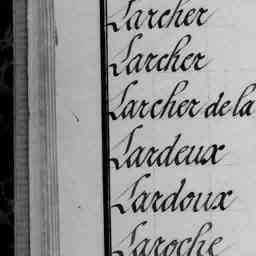 Larcher
Larcher
Larcher de la
Lardeux
Lardoux
Laroche